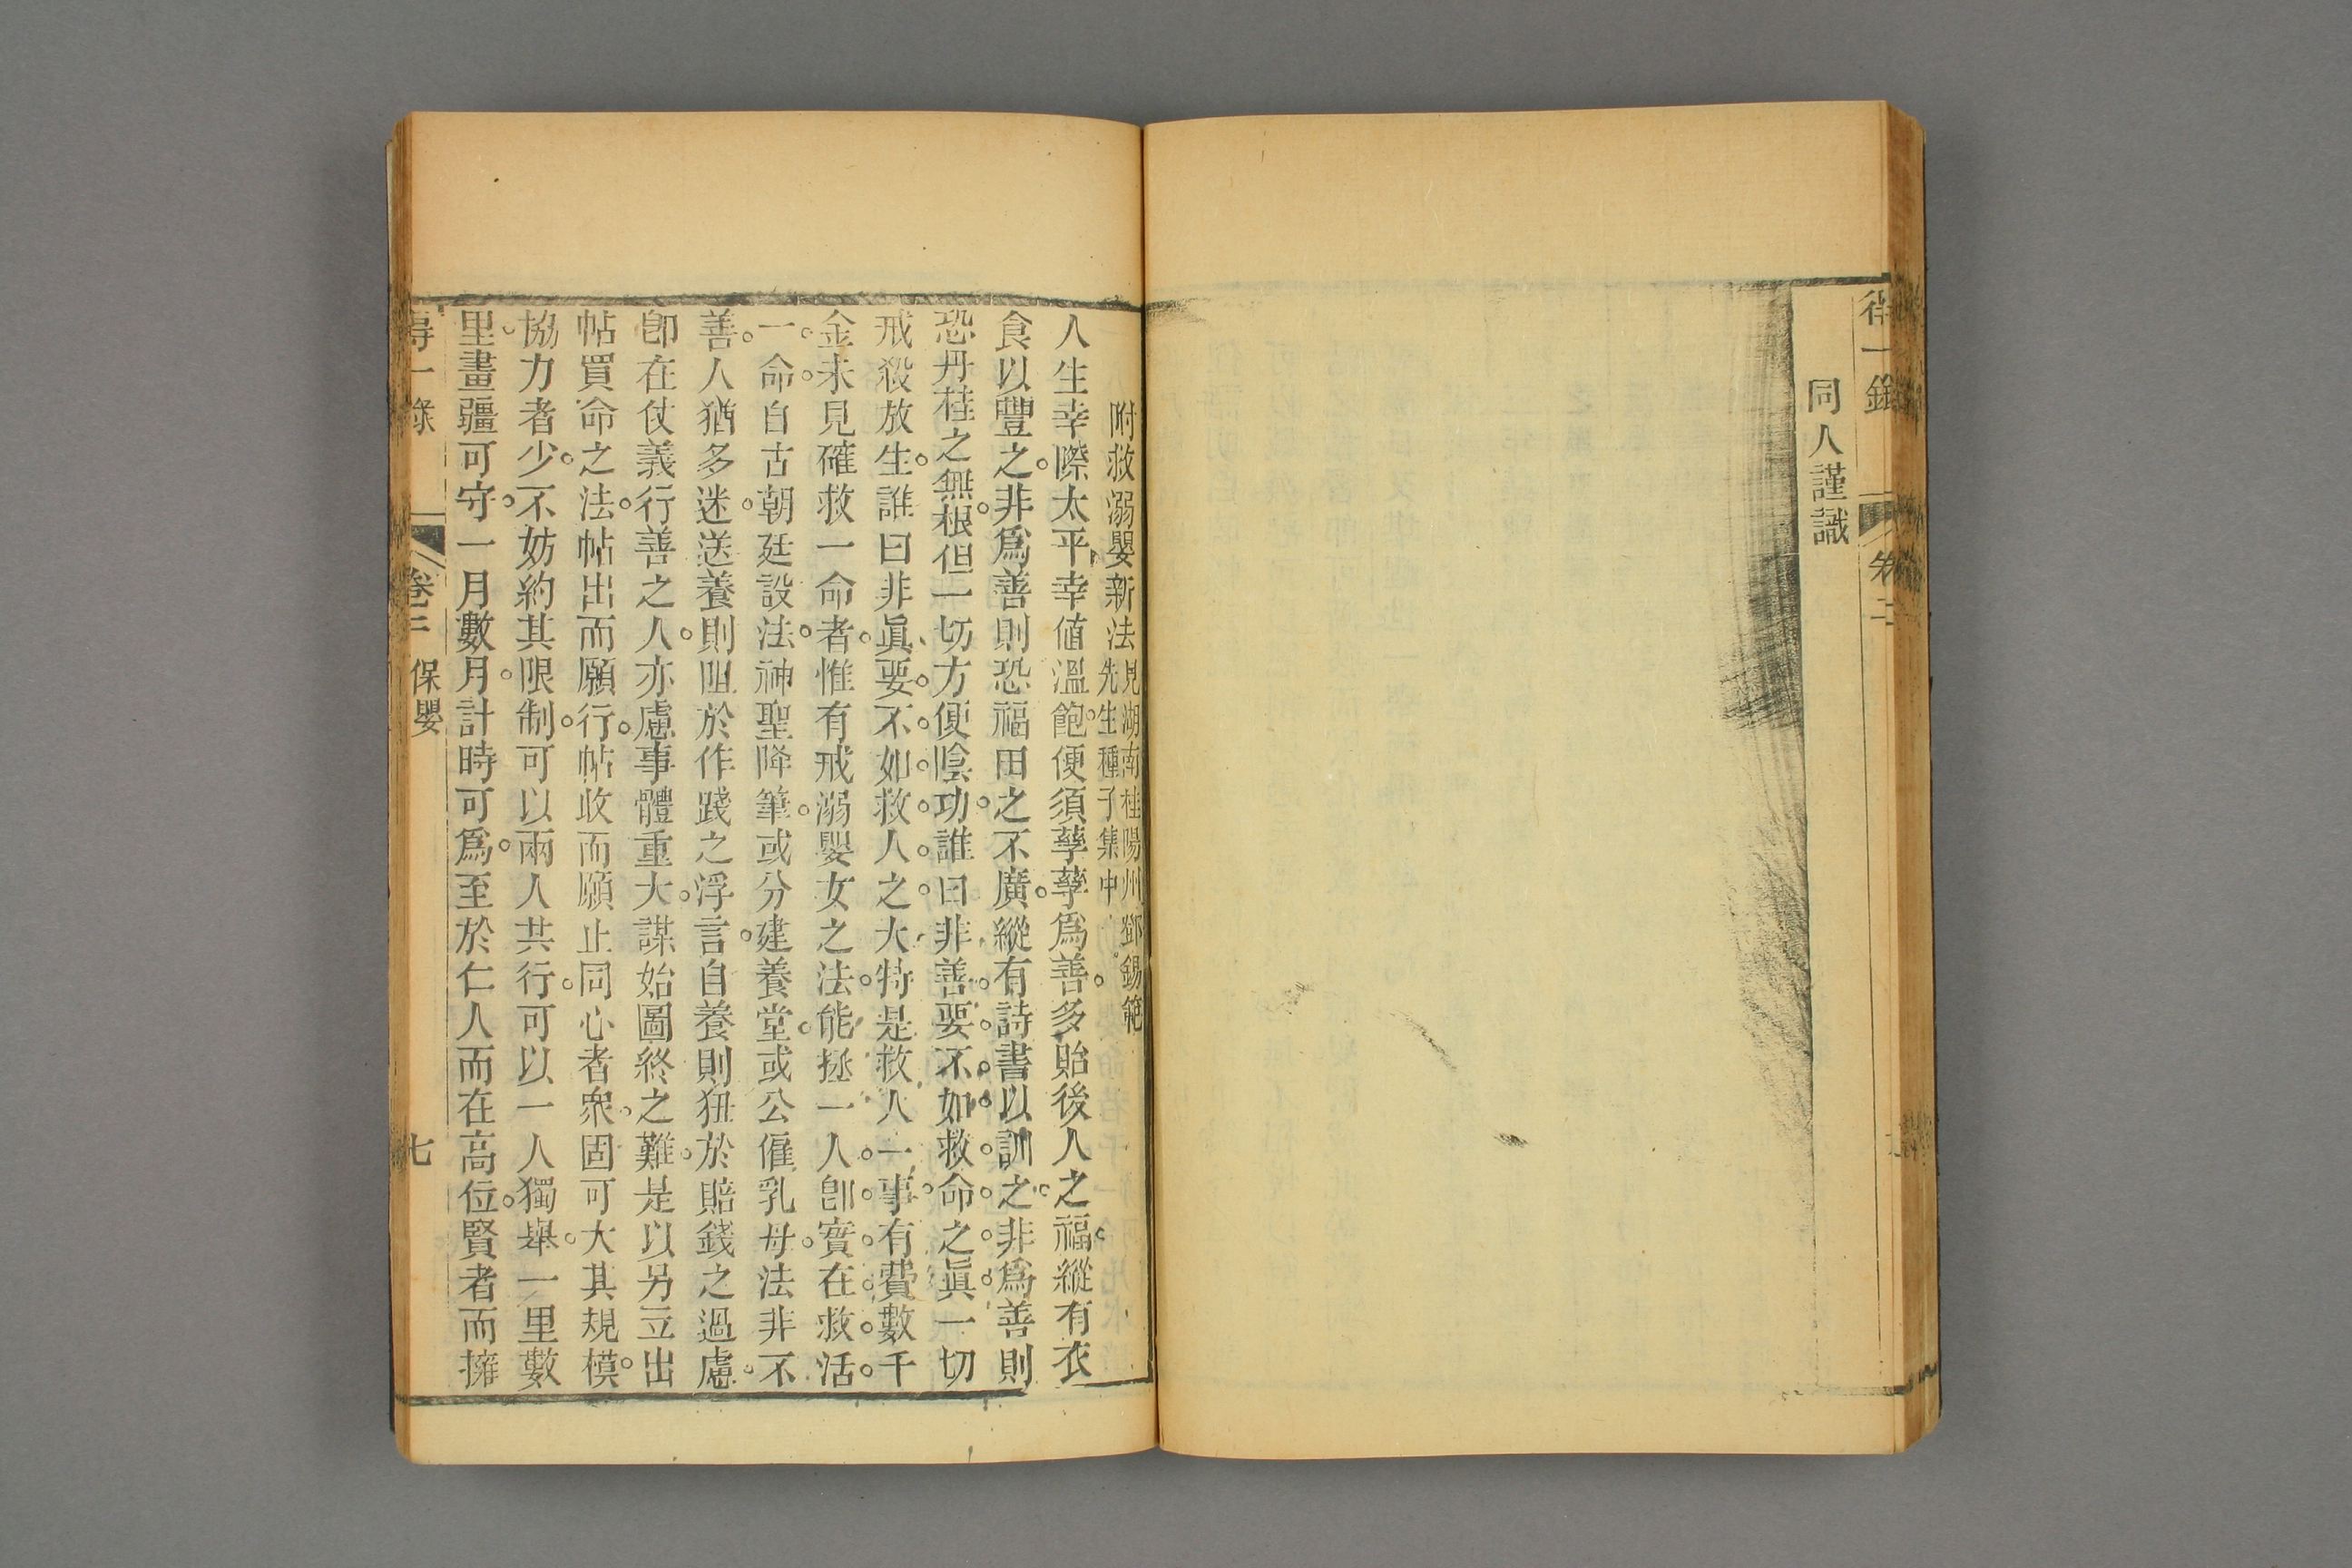 得一錄
卷二
同人謹識
附救溺嬰新法見湖南桂陽州鄧錫範
先生種子集中
人生幸際太平幸值溫飽便須孳孳爲善多貽後人之福縱有衣
食以豐之非爲善則恐福田之不廣縱有詩書以訓之非爲善則
恐丹桂之無根但一切方便陰功誰曰非善要不如救命之眞一切
戒殺放生誰曰非眞要不如救人之大特是救人一事有費數千
金未見確救一命者惟有戒溺嬰女之法能拯一人卽實在救活
一命自古朝廷設法神聖降筆或分建養堂或公僱乳母法非不
善人猶多迷送養則阻於作踐之浮言自養則狃於賠錢之過慮
卽在仗義行善之人亦慮事體重大謀始圖終之難是以另立出
帖買命之法帖出而願行帖收而願止同心者衆固可大其規模
協力者少不妨約其限制可以兩人共行可以一人獨舉一里數
里畫疆可守一月數月計時可爲至於仁人而在高位賢者而擁
得一錄
卷二
保嬰
七